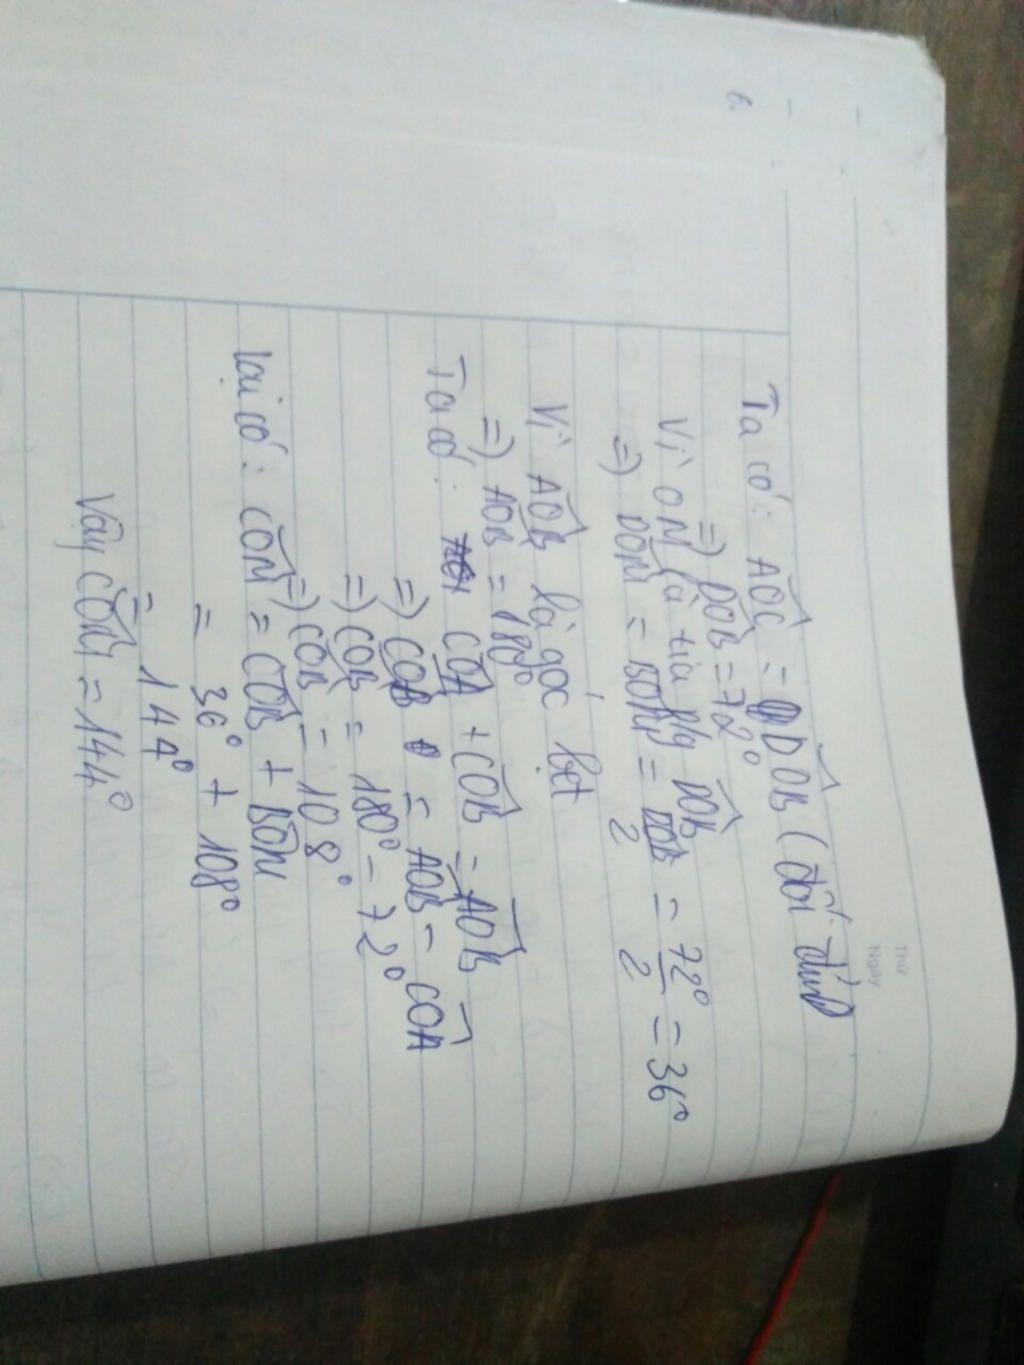 Thứ
Ngày
6.
Ta có: AOC = DOB (đối đỉnh
=> DOB = 72°
Vì OM là tia p/g DOB
=> DOM = BOM = DOB/2 = 72°/2 = 36°
Vì AOB là góc bẹt
=> AOB = 180°
Ta có: COA + COB = AOB
=> COB = AOB - COA
=> COB = 180° - 72°
=> COB = 108°
Lại có: COM = COB + BOM
= 36° + 108°
= 144°
Vậy COM = 144°